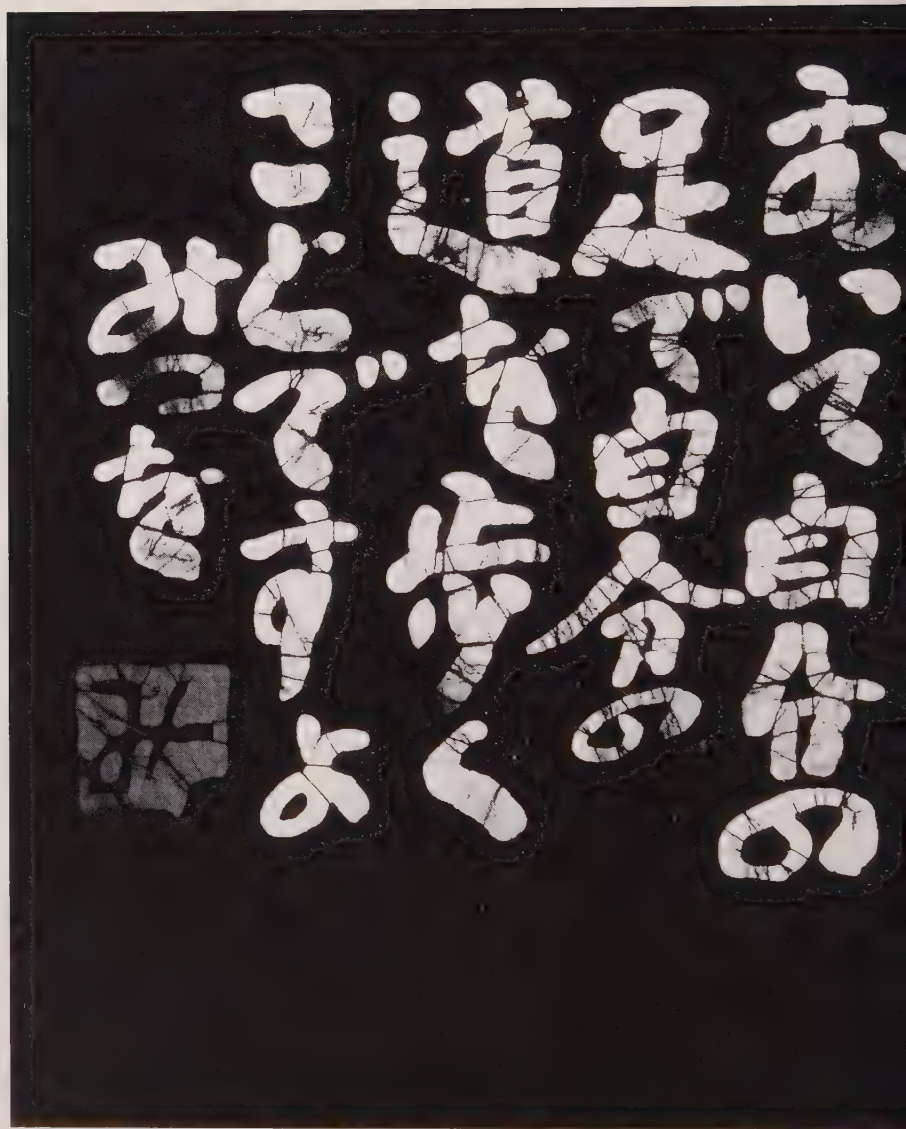 おいて自分の
足で自分の
道を歩く
ことですよ
みつを